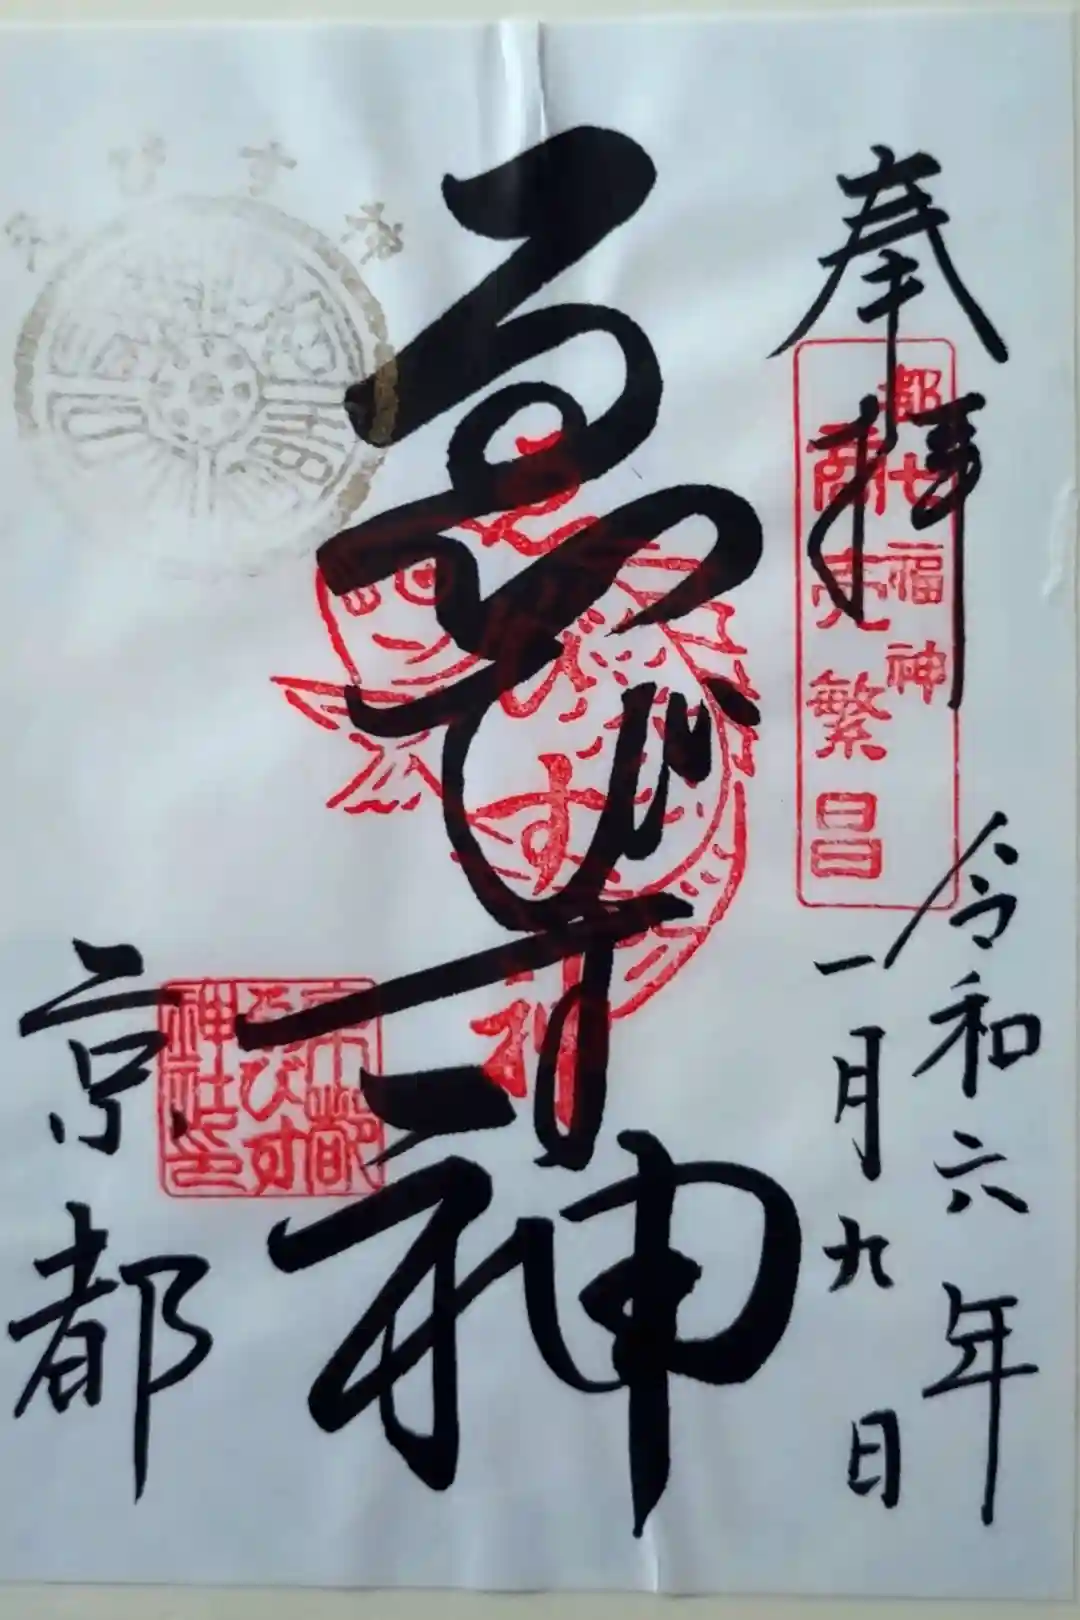 奉拝
都七福神
商売繁昌
令和六年
一月九日
ゑびす神
ゑびす神
京都
京都
ゑびす
神社印